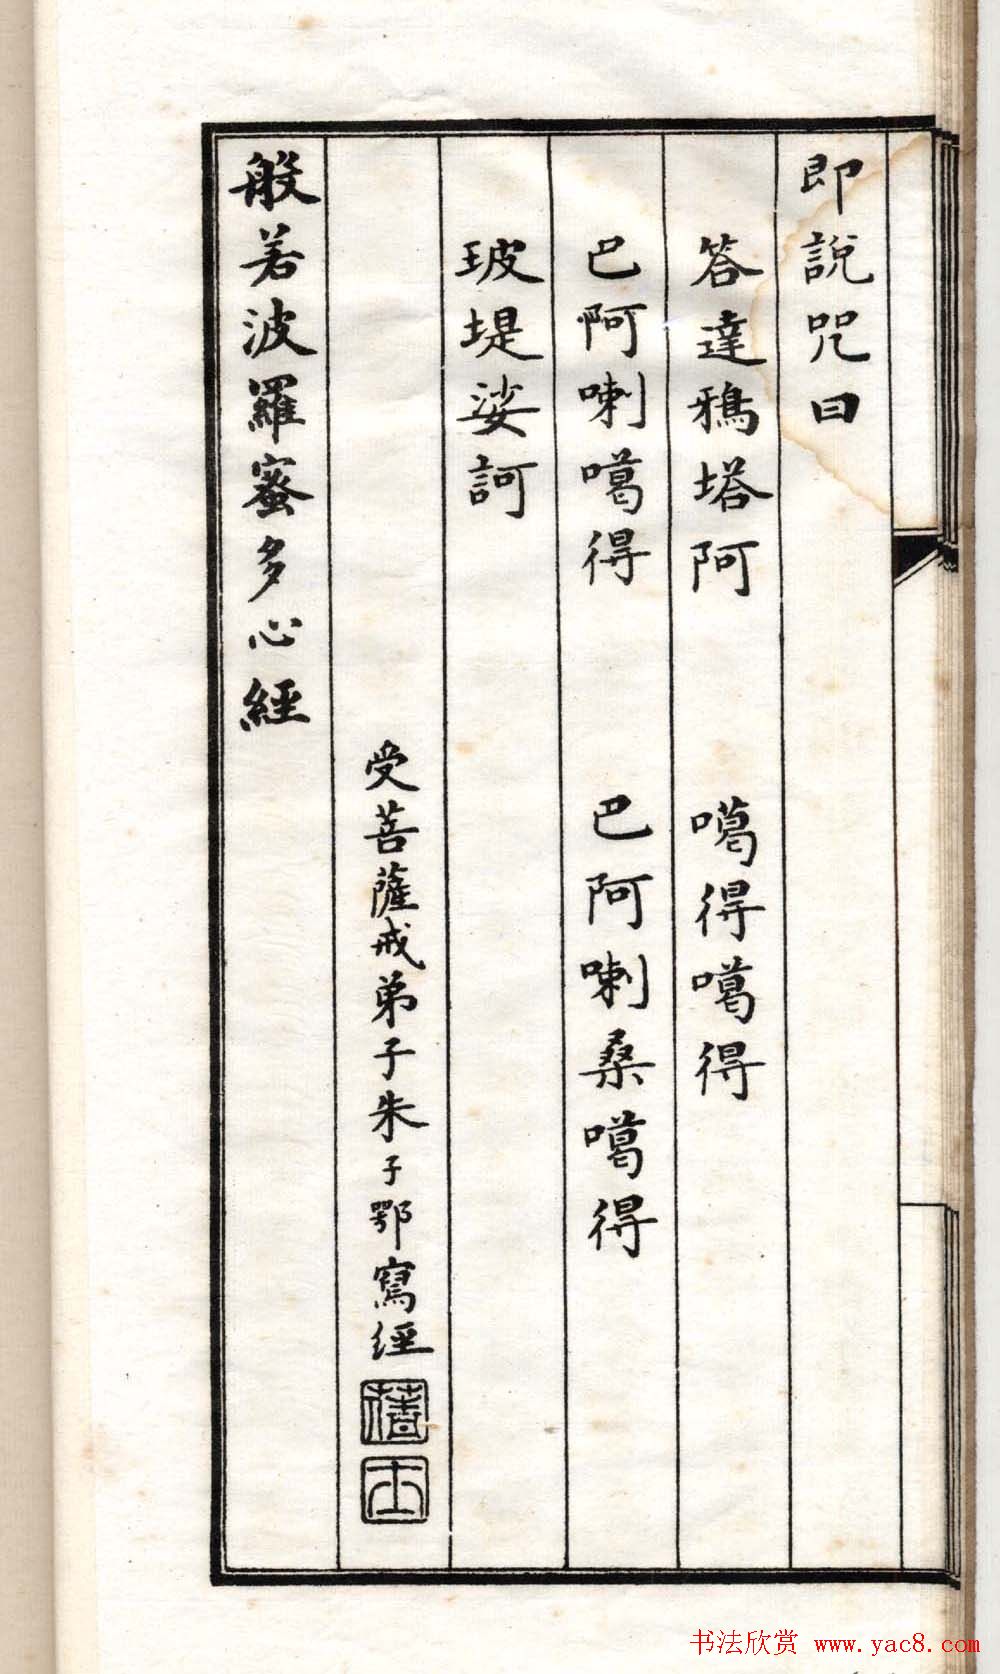 即說咒曰
答達鴉塔阿 噶得噶得
巴阿喇噶得 巴阿喇桑噶得
玻堤娑訶
受菩薩戒弟子朱子鄂寫經
般若波羅蜜多心經
书法欣赏 www.yac8.com